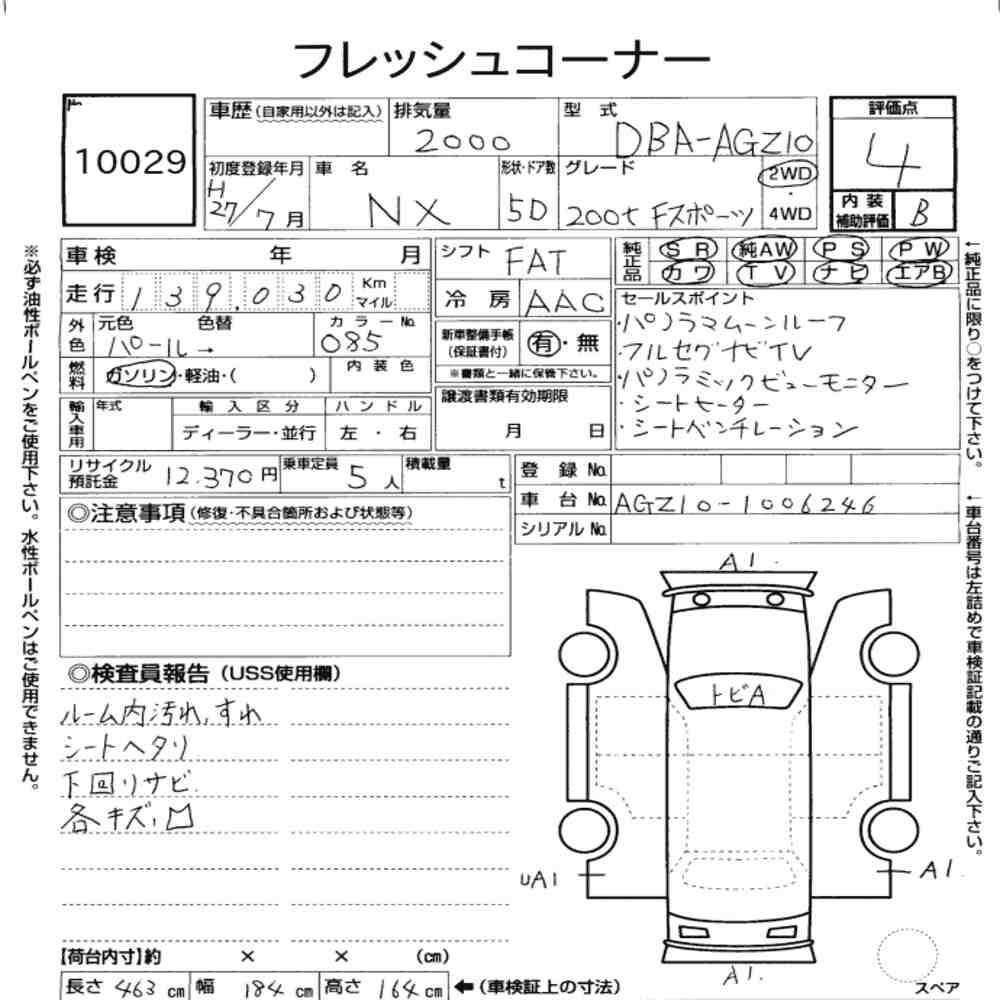 フレッシュコーナー
10029
車歴（自家用以外は記入）
排気量
2000
型 式
DBA-AGZ10
評価点
4
初度登録年月
H
27/7月
車 名
NX
形状・ドア数
5D
グレード
200t Fスポーツ
2WD
・
4WD
内 装
補助評価
B
車検 年 月
シフト
FAT
純正品
SR 純AW PS PW
カワ TV ナビ エアB
走行 139,030 Km マイル
冷 房 AAC
セールスポイント
・パノラマムーンルーフ
・フルセグナビTV
・パノラミックビューモニター
・シートヒーター
・シートベンチレーション
外色
元色 色替
パール→
カラーNo.
085
新車整備手帳
（保証書付）
有・無
※書類と一緒に保管下さい。
燃料
ガソリン・軽油・( )
内 装 色
譲渡書類有効期限
月 日
輸入車用
年式
輸 入 区 分
ディーラー・並行
ハ ン ド ル
左 ・ 右
リサイクル
預託金
12,370円
乗車定員
5人
積載量
t
登 録 No.
車 台 No.
AGZ10-1006246
シリアル No.
◎注意事項（修復・不具合箇所および状態等）
◎検査員報告（USS使用欄）
ルーム内汚れ,すれ
シートヘタリ
下回リサビ
各キズ,凹
A1.
トビA
UA1
A1.
A1.
スペア
【荷台内寸】約 × × （cm）
長さ 463 cm 幅 184 cm 高さ 164 cm ←（車検証上の寸法）
※必ず油性ボールペンをご使用下さい。水性ボールペンはご使用できません。
←純正品に限り○をつけて下さい。
←車台番号は左詰めで車検証記載の通りご記入下さい。